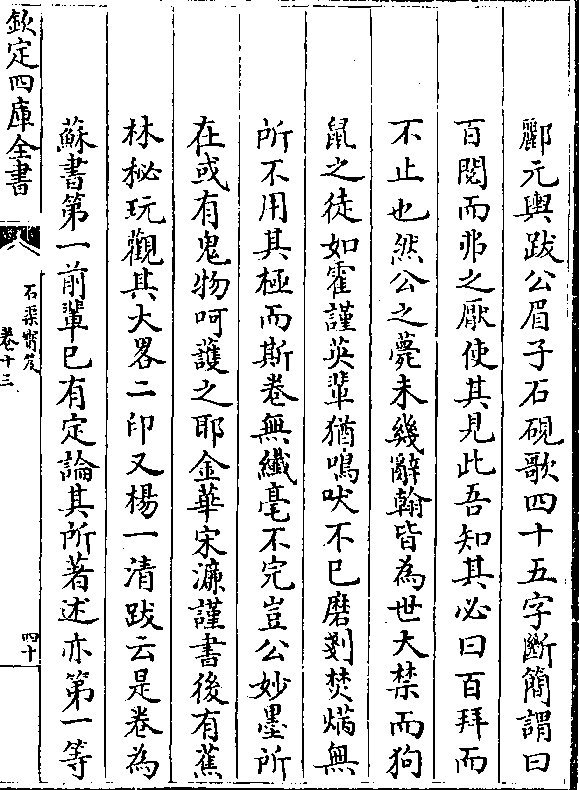 酈元輿跋公眉子石硯歌四十五字斷簡謂曰
百閱而弗之厭使其見此吾知其必曰百拜而
不止也然公之薨未幾辭翰皆為世大禁而狗
鼠之徒如霍謹英輩猶鳴吠不已磨剗焚爇無
所不用其極而斯卷無纖毫不完豈公妙墨所
在或有鬼物呵護之耶金華宋濂謹書後有蕉
林秘玩觀其大畧二印又楊一清跋云是卷為
蘇書第一前輩已有定論其所著述亦第一等
欽定四庫全書
石渠寳笈
卷十三
四十